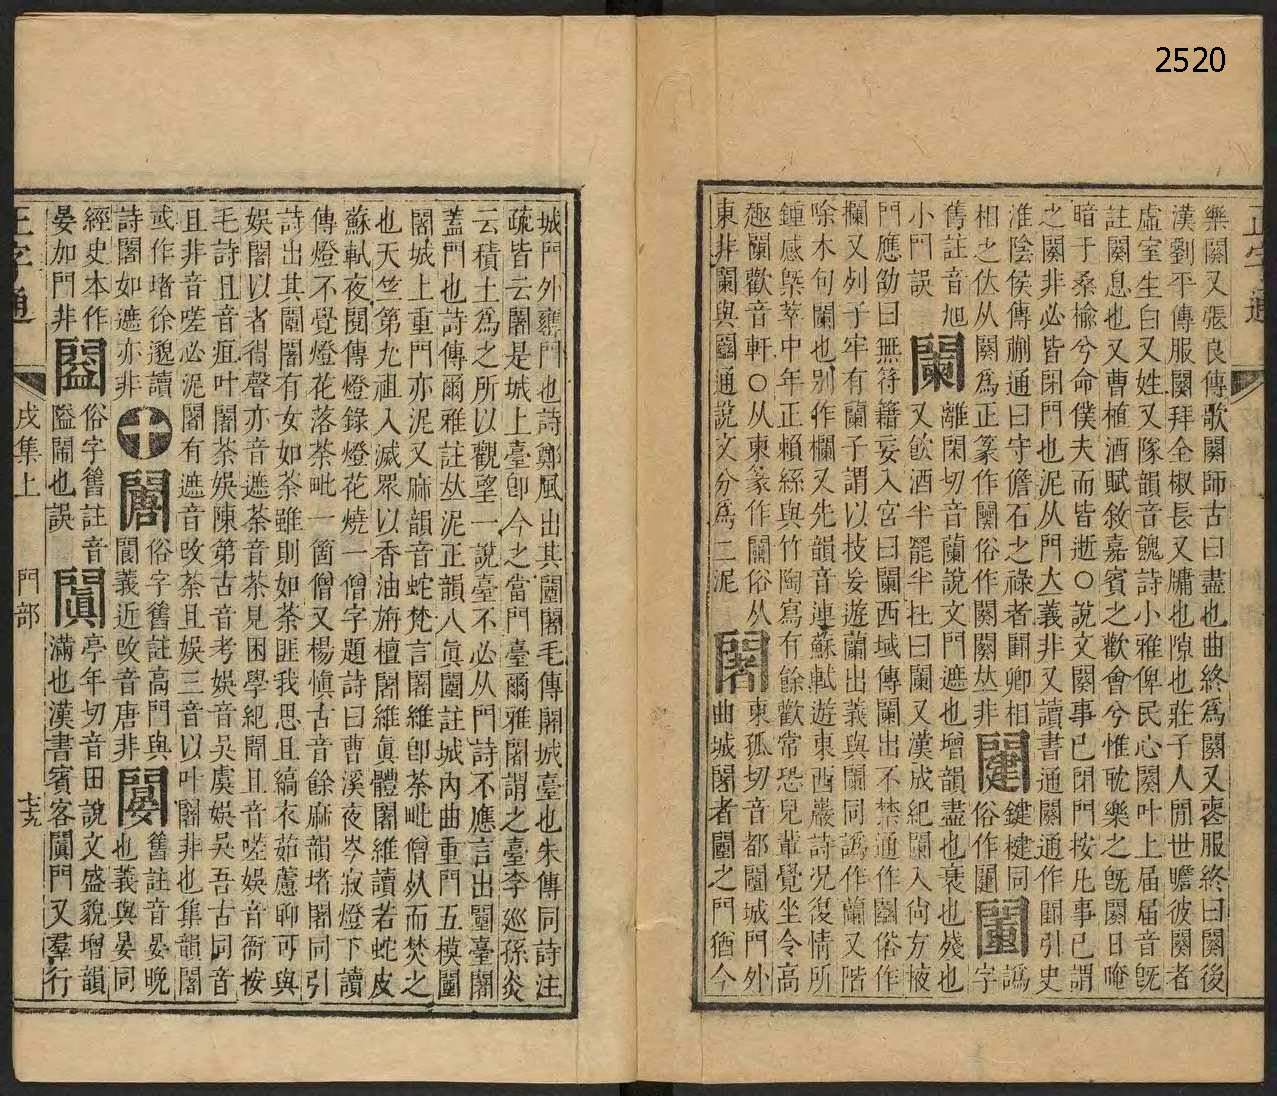 2520
樂闋又張良傳歌闋師古曰盡也曲終爲闋又喪服終曰闋後
漢劉平傳服闋拜全椒長又牖也隙也莊子人閒世瞻彼闋者
虛室生白又姓又隊韻音餽詩小雅俾民心闋叶上届届音旣
註闋息也又曹植酒賦敘嘉賓之歡會兮惟耽樂之旣闋日晻
暗于桑榆兮命僕夫而皆逝○說文闋事已閉門按凡事已謂
之闋非必皆閉門也泥从門大義非又讀書通闋通作闋引史
淮陰侯傳蒯通曰守儋石之祿者闋卿相
相之仸从闋爲正篆作闋俗作闋闋𠀤非
闥俗作闥
鍵楗同
字
譌
舊註音旭
小門誤
闌離閑切音蘭說文門遮也增韻盡也衰也殘也
又飮酒半罷半在曰闌又漢成紀闌入尙方掖
門應劭曰無符籍妄入宮曰闌西域傳闌出不禁通作闌俗作
欄又列子牢有蘭子謂以技妄遊蘭出義與闌同譌作蘭又階
除木句闌也别作欄又先韻音連蘇軾遊東西巖詩况復情所
鍾感槩萃中年正賴絲與竹陶寫有餘歡常恐兒輩覺坐令高
趣闌歡音軒○从柬篆作闌俗从
東非闌與闌通說文分爲二泥
闍東孤切音都闉城門外
曲城闍者闉之門猶今
城門外甕門也詩鄭風出其闉闍毛傳闍城臺也朱傳同詩注
疏皆云闍是城上臺卽今之當門臺爾雅闍謂之臺李巡孫炎
云積土爲之所以觀望一說臺不必从門詩不應言出闉臺闍
蓋門也詩傳爾雅註𠀤泥正韻八眞闉註城內曲重門五模闍
闍城上重門亦泥又麻韻音蛇梵言闍維卽荼毗僧死而焚之
也天竺第九祖入滅眾以香油旃檀闍維眞體闍維讀若蛇皮
蘇軾夜閱傳燈錄燈花燒一僧字題詩曰曹溪夜岑寂燈下讀
傳燈不覺燈花落荼毗一箇僧又楊愼古音餘麻韻堵闍同引
詩出其闉闍有女如荼雖則如荼匪我思且縞衣茹藘聊可與
娛闍以者得聲亦音遮荼音茶見困學紀聞且音嗟娛音衙按
毛詩且音疽叶闍荼娛陳第古音考娛音吳虞娛吳吾古同音
且非音嗟必泥闍有遮音改荼且娛三音以叶闍非也集韻闍
或作堵徐邈讀
詩闍如遮亦非
十
闛俗字舊註高門與
閬義近改音唐非
闄舊註音晏晩
也義與晏同
經史本作
晏如門非
闔俗字舊註音
隘鬧也誤
闐亭年切音田說文盛貌增韻
滿也漢書賓客闐門又羣行
正字通
戌集上
門部